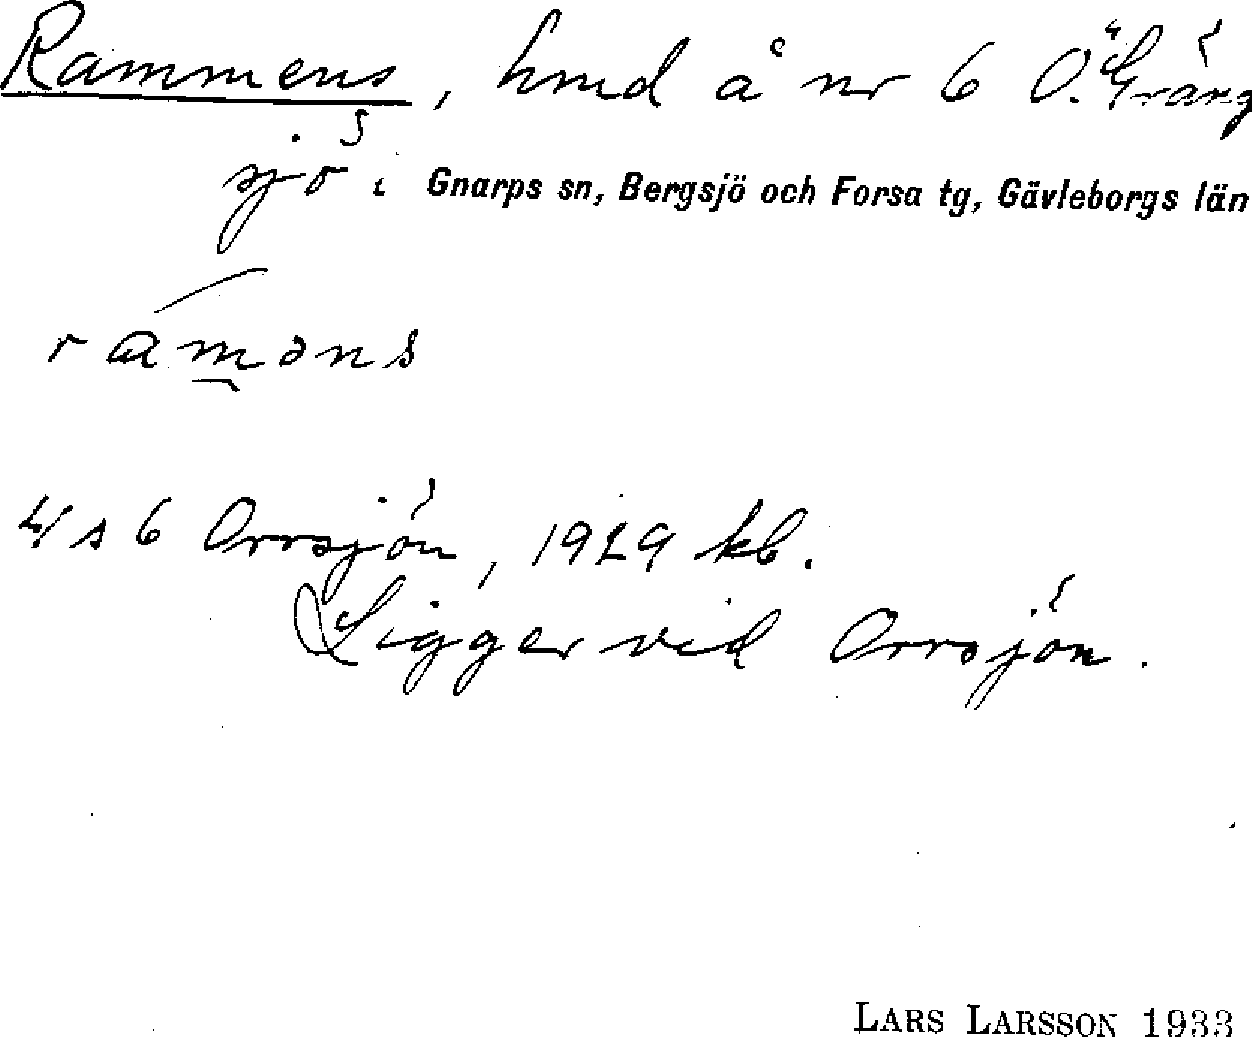 Rammens, hmd å nr 6 Ö. Gräng
sjö i Gnarps sn, Bergsjö och Forsa tg, Gävleborgs län
raməns
4/s 6 Orrsjön, 1929 kb.
Ligger vid Orrsjön.
LARS LARSSON 1933